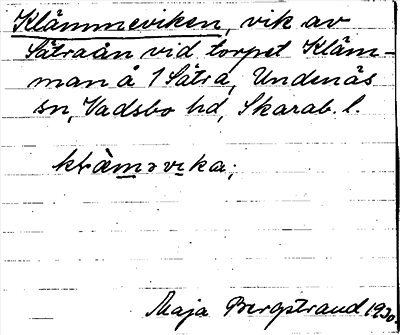 Klämmeviken, vik av
Sätraån vid torpet Kläm-
man å 1 Sätra, Undenäs
sn, Vadsbo hd, Skarab. l.
kläməvika;
Maja Bergstrand 1930.